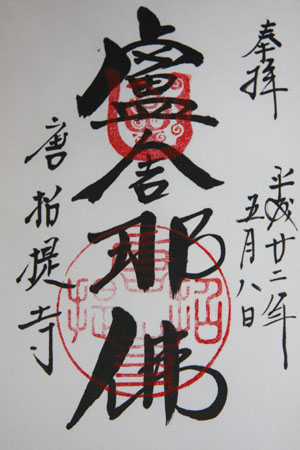 奉拝
平成廿二年
五月八日
盧舎那佛
唐招提寺